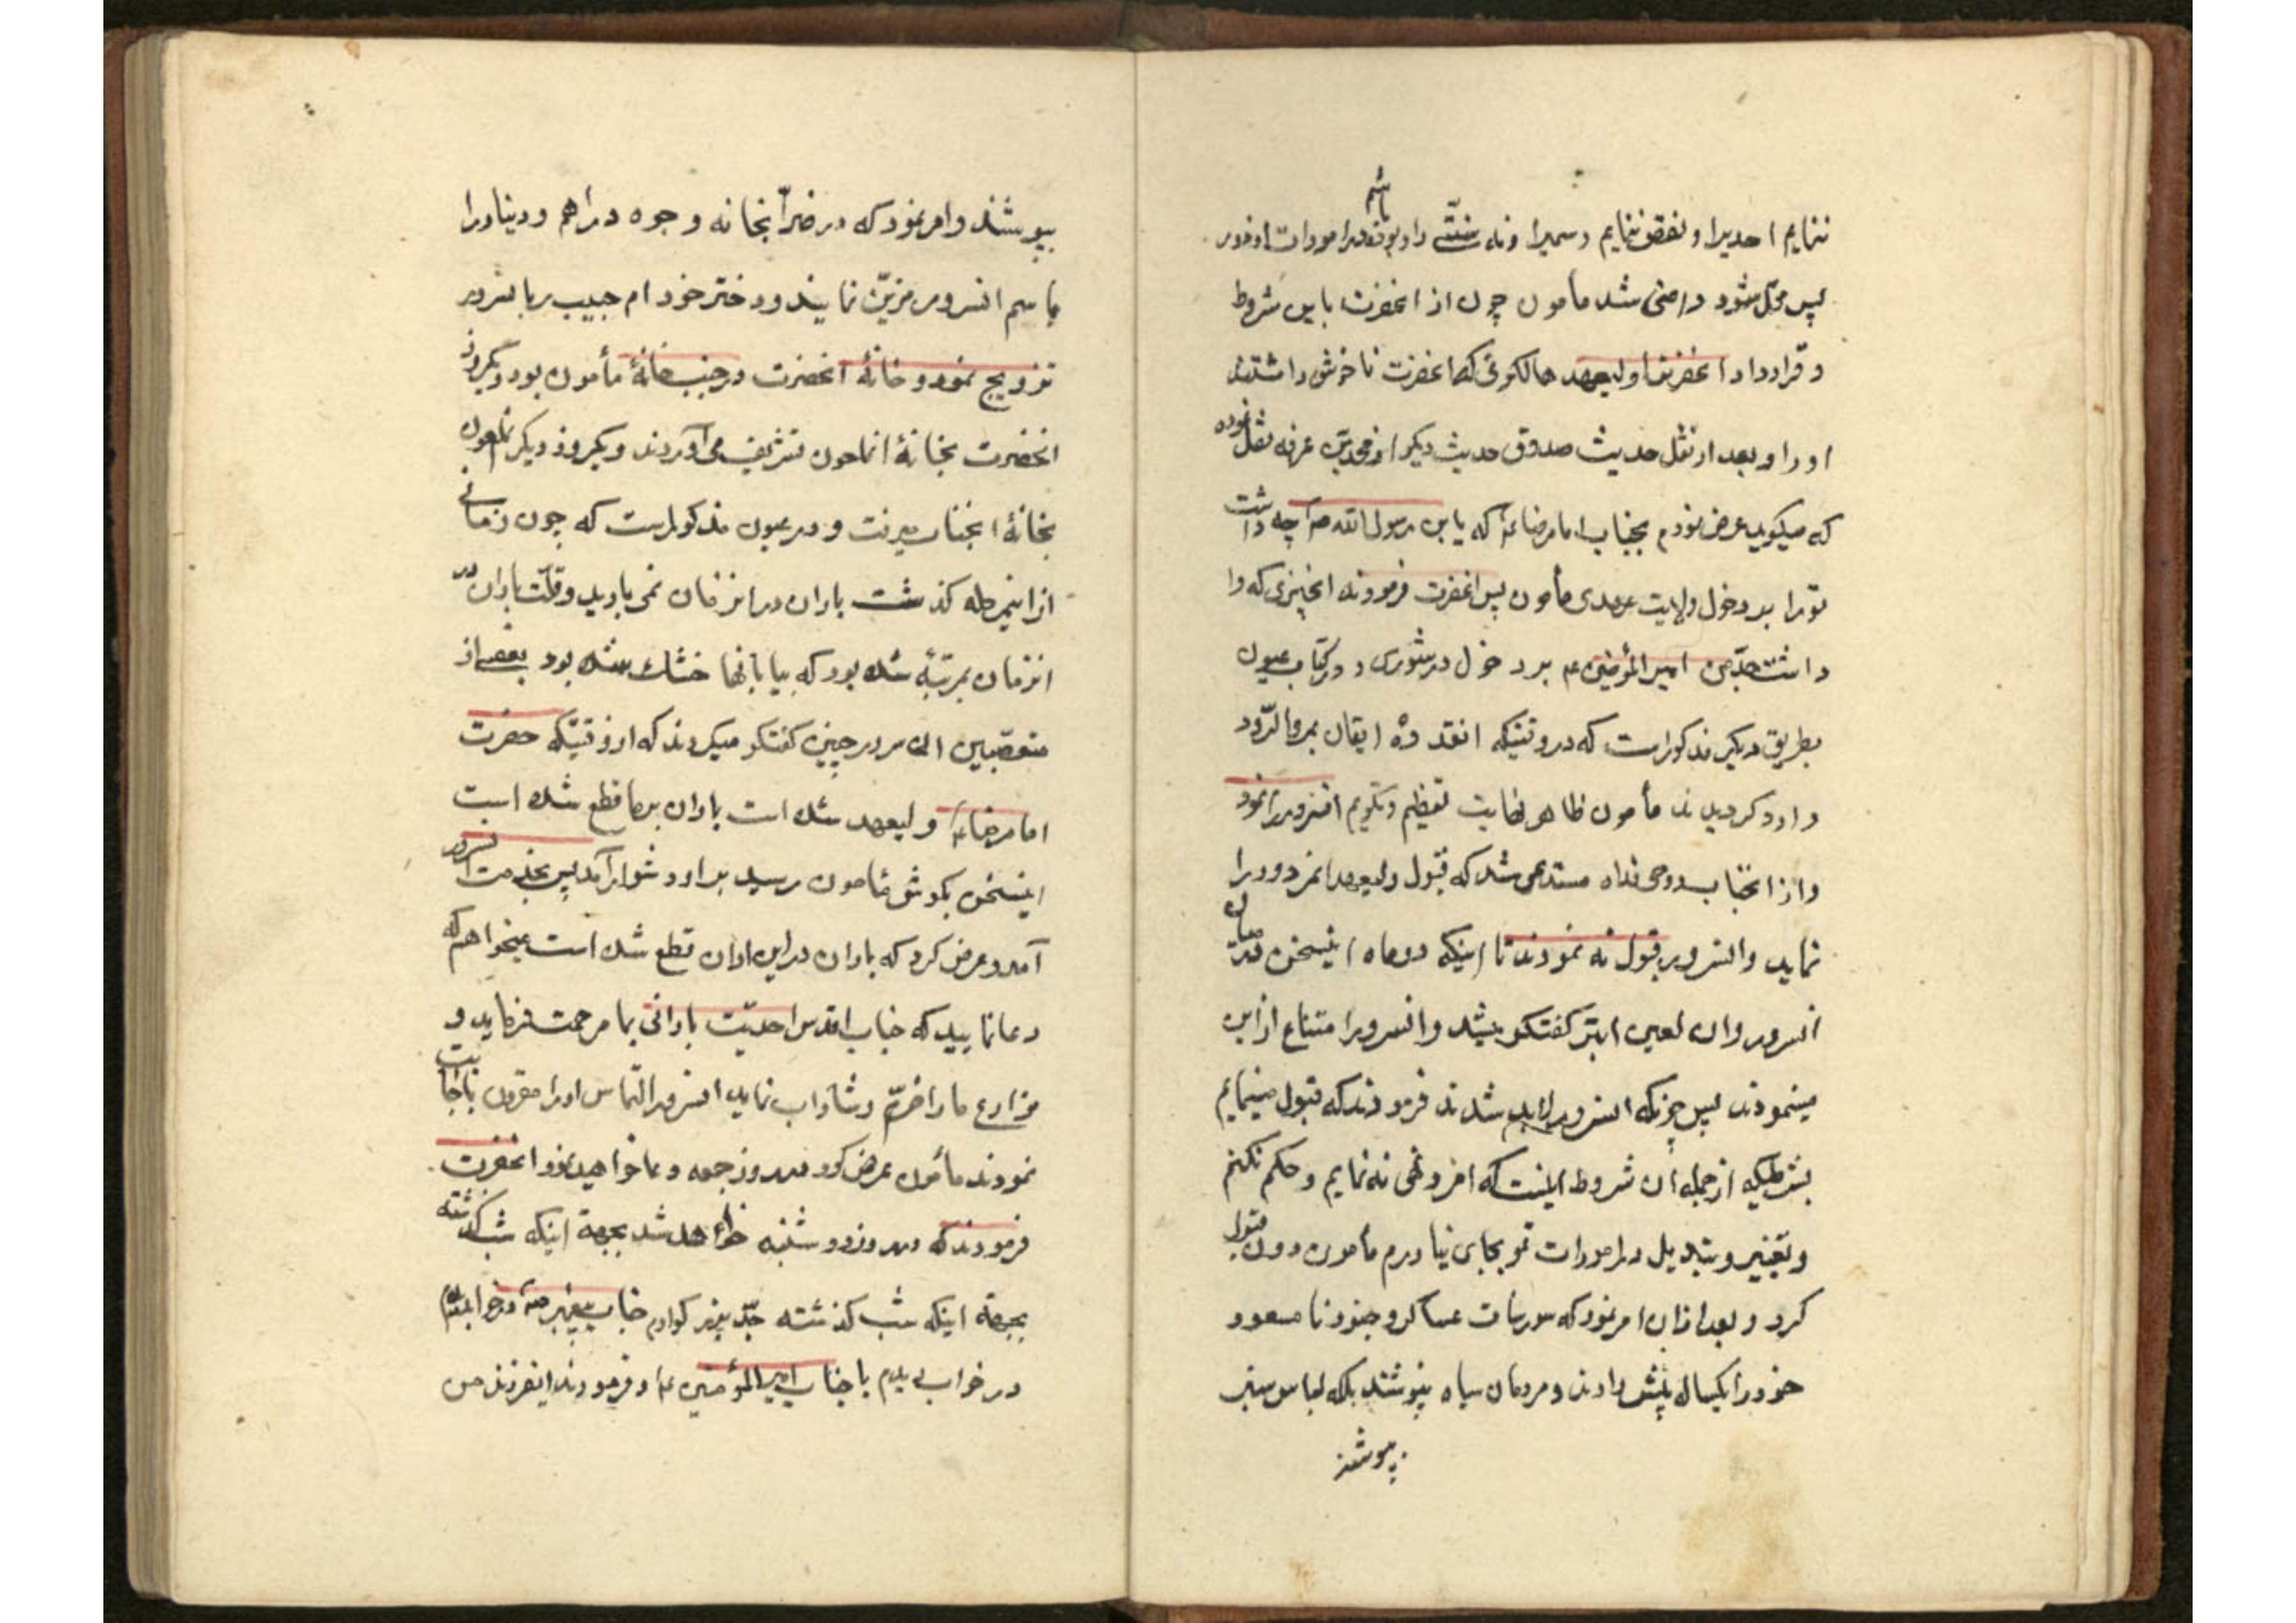 ننمایم احدیرا و نقض ننمایم رسمیرا و نه سنتّی را و بوده باشم در امورات از دور
پس موکّل شود راضی شد مأمون چون از انحضرت باین شروط
و قرارداد انحضرترا ولیعهد حالکونی که انحضرت ناخوش داشتند
اورا و بعد از نقل حدیث صدوق حدیث دیکر از محمد بن عرفه نقل نموده
که میکوید عرض نمودم بجناب امام رضا ع که یابن رسول الله ص چه داشت
تورا بر دخول ولایت عهدی مأمون پس انحضرت فرمودند انچیزی که وا
داشت جدّ من امیر المؤمنین ع بر دخول در شوری و در کتاب عیون
بطریق دیکر مذکور است که در وقتیکه انقدوهٔ ایقان بمرو الرّود
وارد کردیدند مأمون ظاهر نهایت تعظیم و تکریم انسرور را نمود
و از انجناب روحی فداه مستدعی شد که قبول ولیعهدی انمردود را
نماید و انسرور قبول نه نمودند تا اینکه دو ماه اینسخن میان
انسرور و ان لعین ابتر کفتکو میشد و انسرور امتناع از این
مینمودند پس چونکه انسرور لابد شدند فرمودند که قبول مینمایم
بشرطیکه از جمله ان شروط اینست که امر و نهی نه نمایم و حکم نکنم
و تغییر و تبدیل در امورات تو بجای نیاورم مأمون دون قبول
کرد و بعد از ان امر نمود که سورسات عساکر و جنود نامسعود
خود را یکساله پیش دادند و مردمان سیاه نپوشند بلکه لباس سبز
بپوشند
بپوشند و امر نمود که در ضرّابخانه وجوه دراهم و دینار را
باسم انسرور مزیّن نمایند و دختر خود ام حبیب را بانسرور
تزویج نمود و خانهٔ انحضرت در جنب خانهٔ مأمون بود و یکروز
انحضرت بخانهٔ انمامون تشریف می آوردند و یکروز دیکر انملعون
بخانهٔ انجناب میرفت و در عیون مذکور است که چون زمانی
از اینمرحله کذشت باران در انزمان نمی بارید و قلّت باران در
انزمان بمرتبهٔ شده بود که بیابانها خشک شده بود بعضی از
متعصّبین ان سرور چنین کفتکو میکردند که از وقتیکه حضرت
امام رضا ع ولیعهد شده است باران بر ما قطع شده است
اینسخن بکوش مامون رسید بر او دشوار آمد پس بخدمت انسرور
آمد و عرض کرد که باران در این اوان قطع شده است میخواهم که
دعا نمایید که جناب اقدس احدیّت بارانی بما مرحمت فرماید و
مزارع ما را خرّم و شاداب نماید انسرور التماس اورا مقرون باجابت
نمودند مأمون عرض کرد در روز جمعه دعا خواهید نمود انحضرت
فرمودند که در روز دوشنبه خواهد شد بجهة اینکه شب کذشته
بجهة اینکه شب کذشته جدّ بزرکوارم جناب پیغمبر ص
در خواب دیدم با جناب امیر المؤمنین ع و فرمودند ایفرزند من